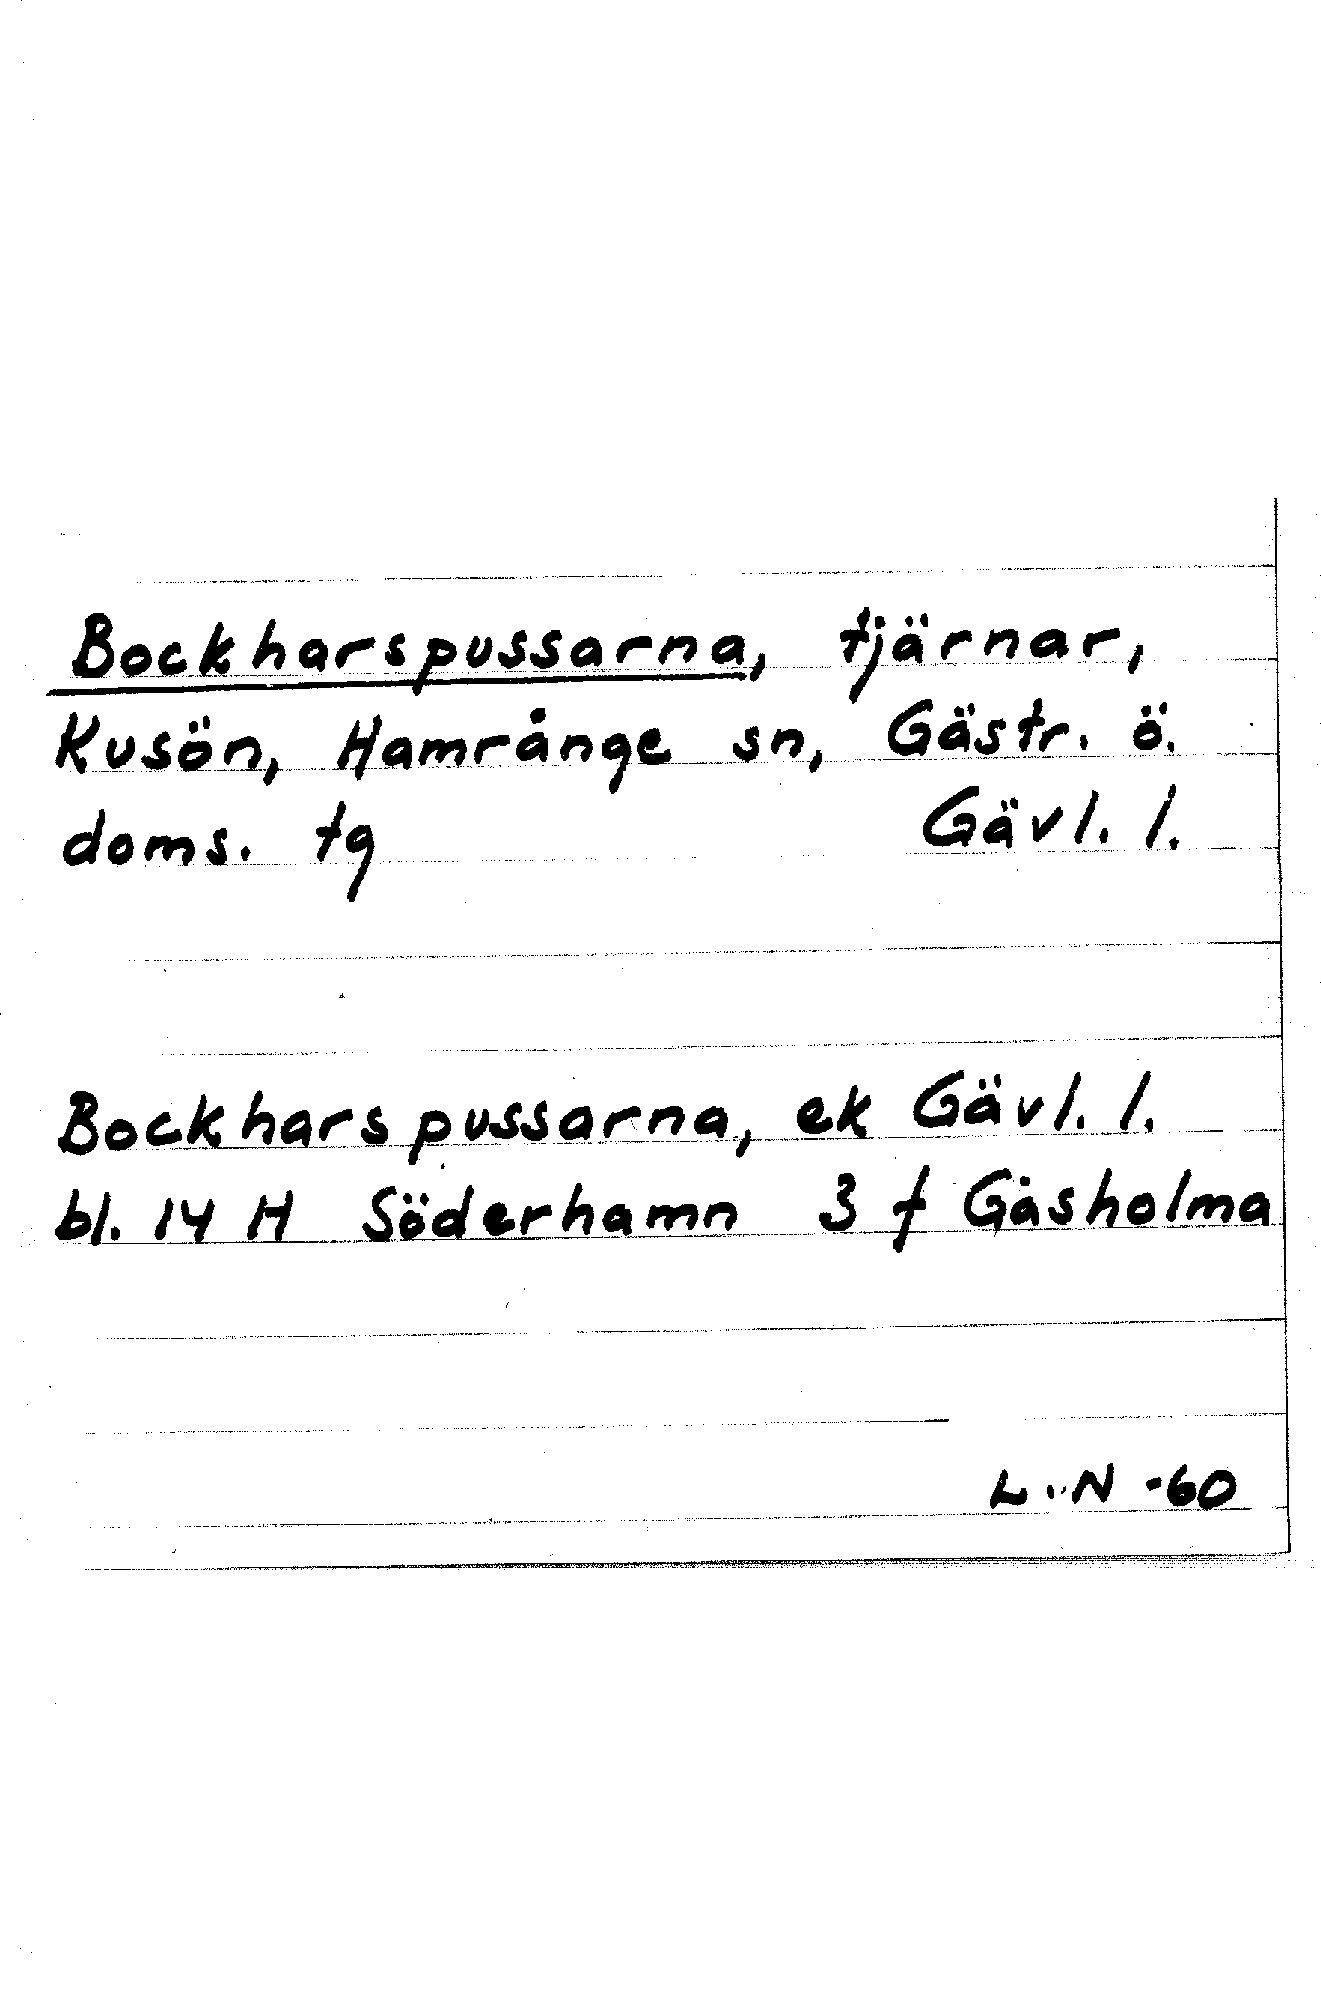 Bockharspussarna, tjärnar,
Kusön, Hamrånge sn, Gästr. ö.
doms. tg Gävl. l.
Bockharspussarna, ek Gävl. l.
bl. 14 H Söderhamn 3 f Gåsholma
L. N -60